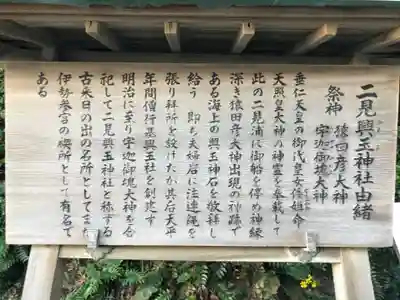 二見興玉神社由緒
祭神 猿田彦大神
宇迦御魂大神
垂仁天皇の御代皇女倭姫命
天照皇大神の神霊を奉戴して
此の二見浦に御船を停め神縁
深き猿田彦大神出現の神跡で
ある海上の興玉神石を敬拝し
給う 即ち夫婦岩に注連縄を
張り拝所を設けたり其后天平
年間僧行基興玉社を創建す
明治に至り宇迦御魂大神を合
祀して二見興玉神社と称する
古来日の出の名所としてまた
伊勢参宮の禊所として有名で
ある